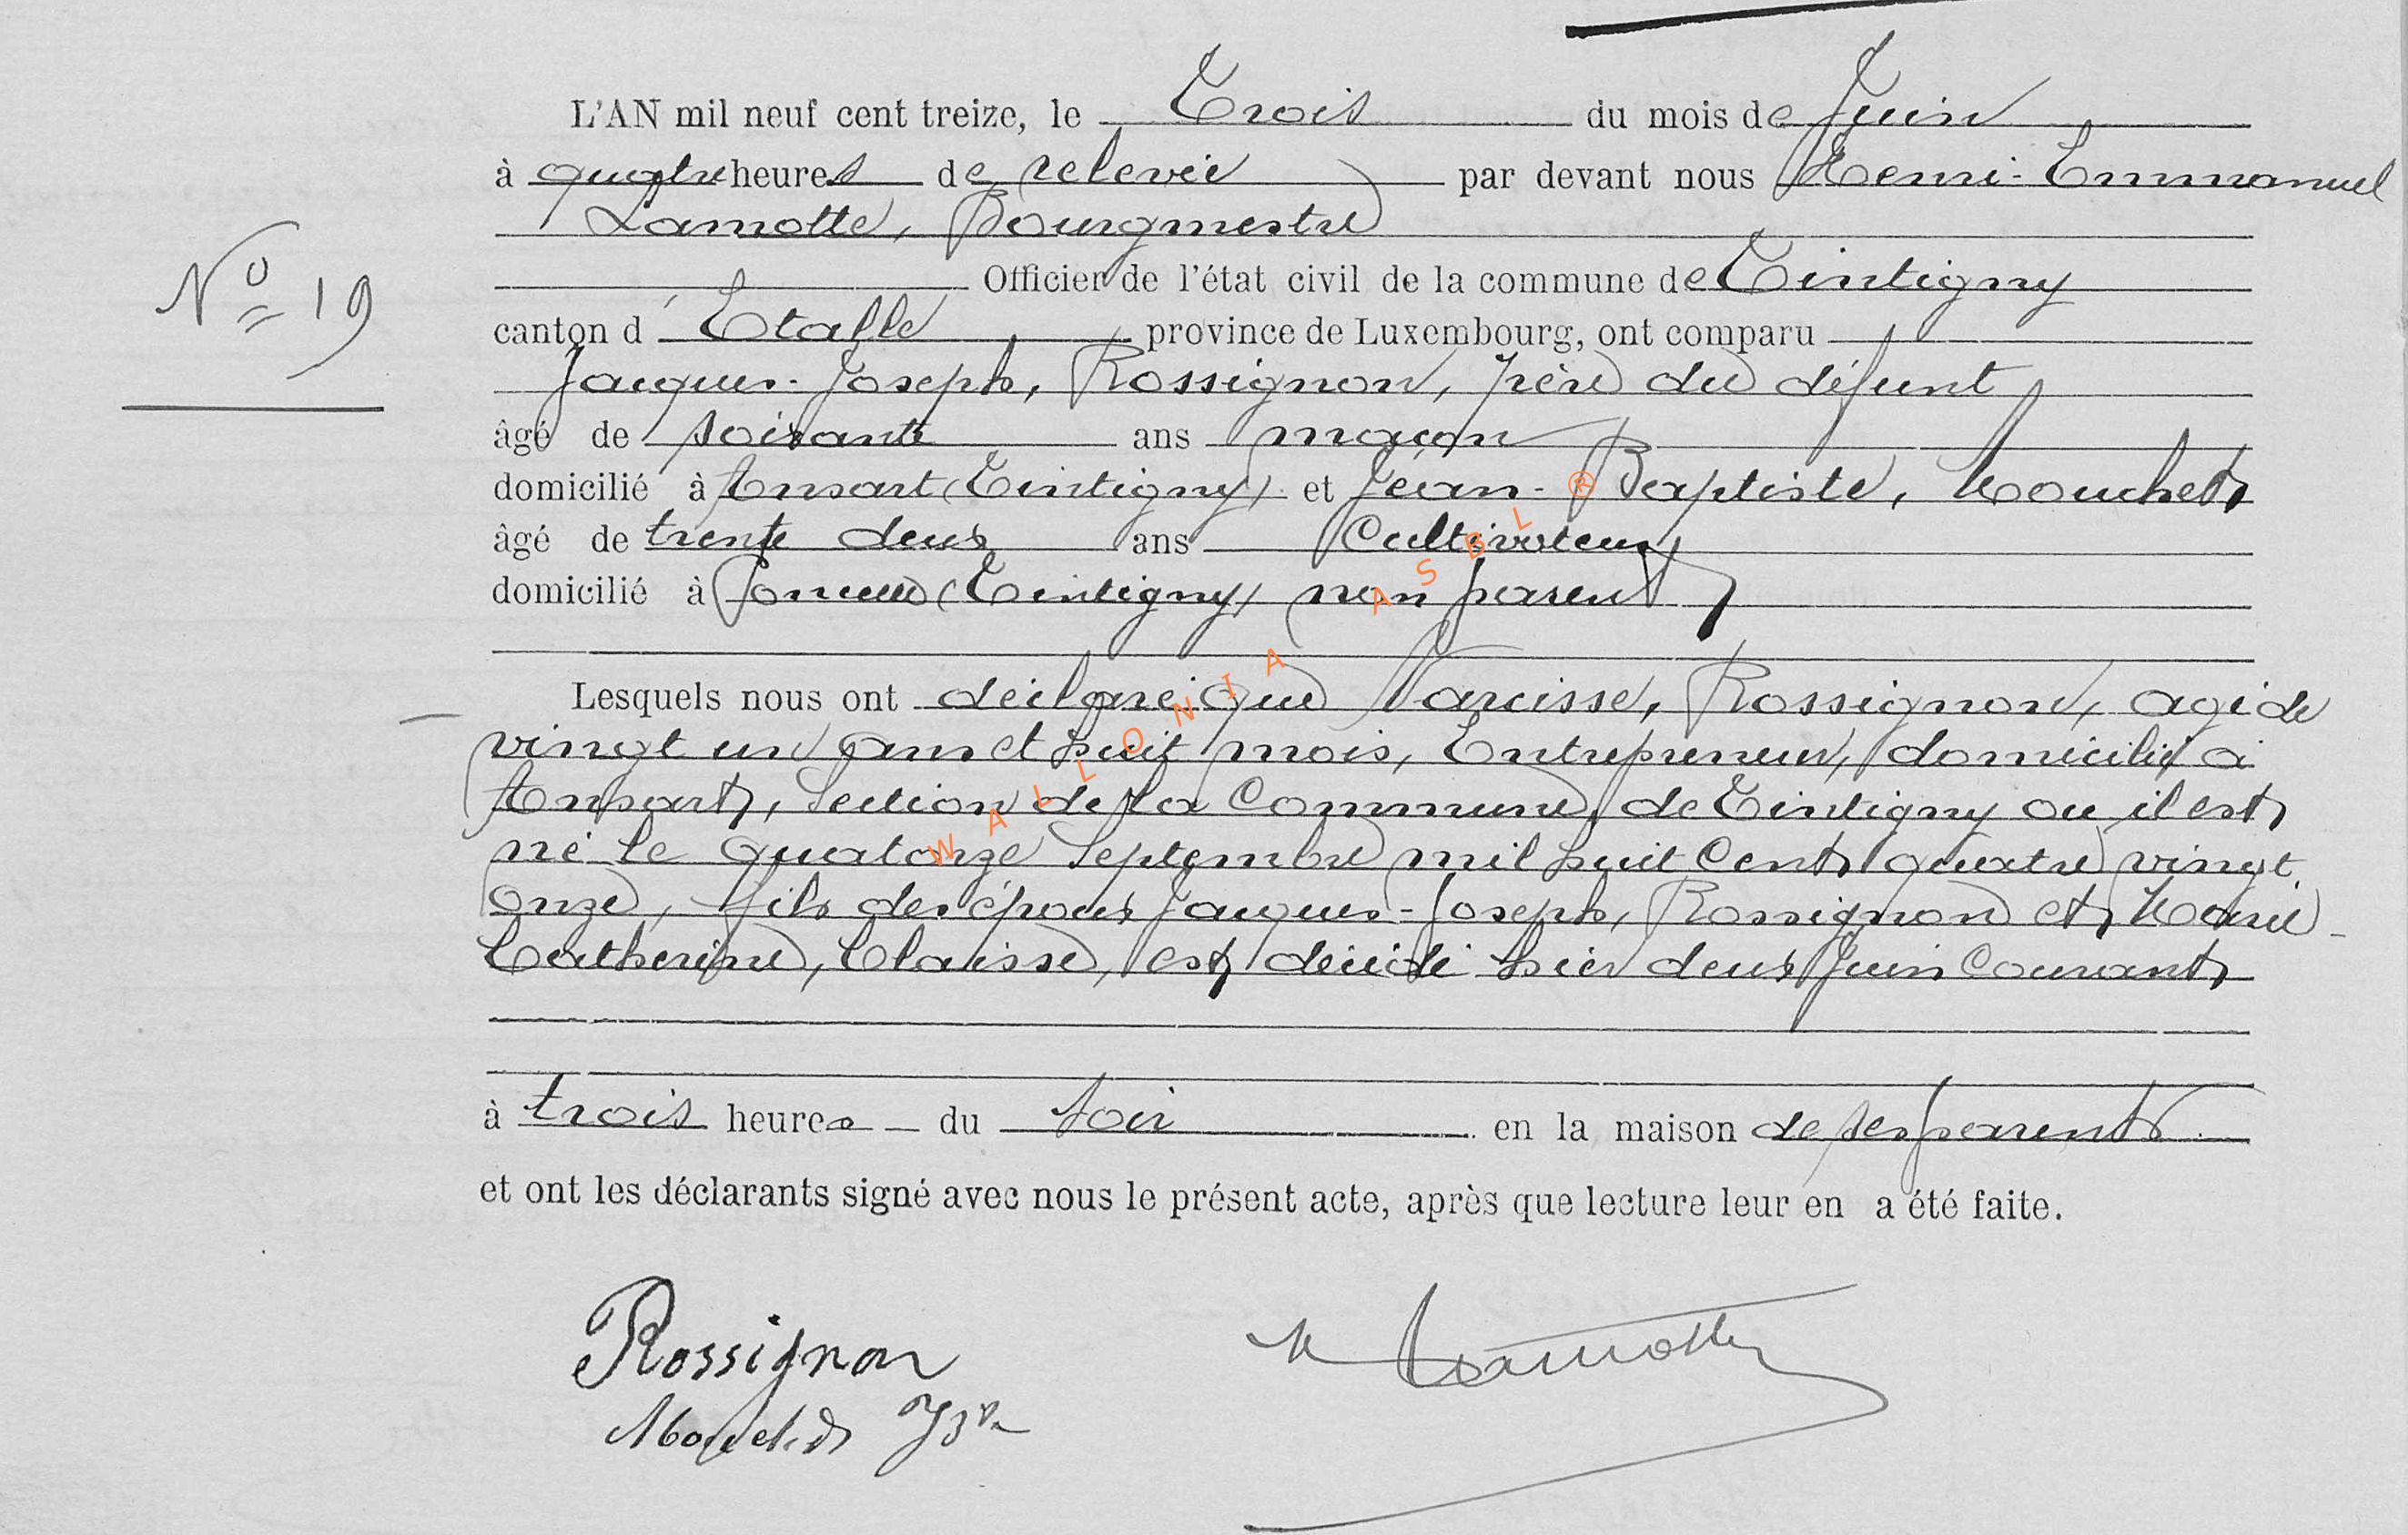 L'AN mil neuf cent treize, le Trois du mois de Juin
à quatre heures de relevée par devant nous Henri-Emmanuel
Lamotte, Bourgmestre
Officier de l'état civil de la commune de Tintigny
N° 19
canton d'Etalle province de Luxembourg, ont comparu
Jacques-Joseph, Rossignon, père du défunt
âgé de soixante ans maçon
domicilié à Ansart (Tintigny) et Jean-Baptiste, Mouchet
âgé de trente deux ans Cultivateur
domicilié à (Tintigny) non parent
Lesquels nous ont déclaré que Narcisse, Rossignon, agé de
vingt un ans et huit mois, Entrepreneur, domicilié à
Ansart, Section de la Commune de Tintigny ou il est
né le quatorze Septembre mil huit Cent quatre vingt
onze, fils des époux Jacques-Joseph, Rossignon et Marie-
Catherine, Claisse, est décédé hier deux Juin Courant
à trois heures du soir en la maison de ses parents
et ont les déclarants signé avec nous le présent acte, après que lecture leur en a été faite.
Rossignon
Mouchet JBte
H Lamotte
WALLONIA ASBL ®